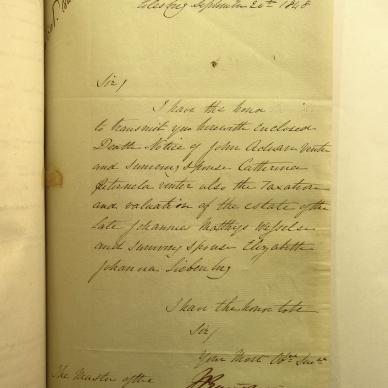 Colesberg September 20th 1848
Sir/
I have the honor
to transmit you herewith enclosed
Death Notice of John Adrian Venter
and surviving spouse Catherina
Petronela Venter also the Taxation
and valuation of the estate of the
late Johannes Matthys Wessels
and surviving spouse Elizabeth
Johanna Siebenberg
I have the honor to be
Sir/
Your Most Obt Servt
The Master of the